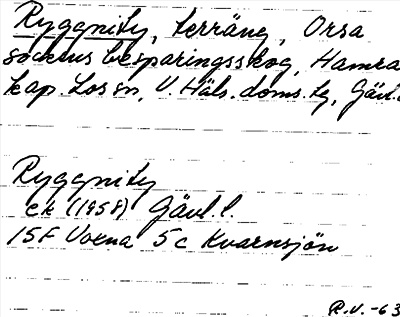 Ryggnity, terräng, Orsa
sockens besparingsskog, Hamra
kap. Los sn, V. Häls. doms. tg, Gävl. l.
Ryggnity
ek (1958) Gävl. l.
15F Voxna 5c Kvarnsjön
R.V. -63